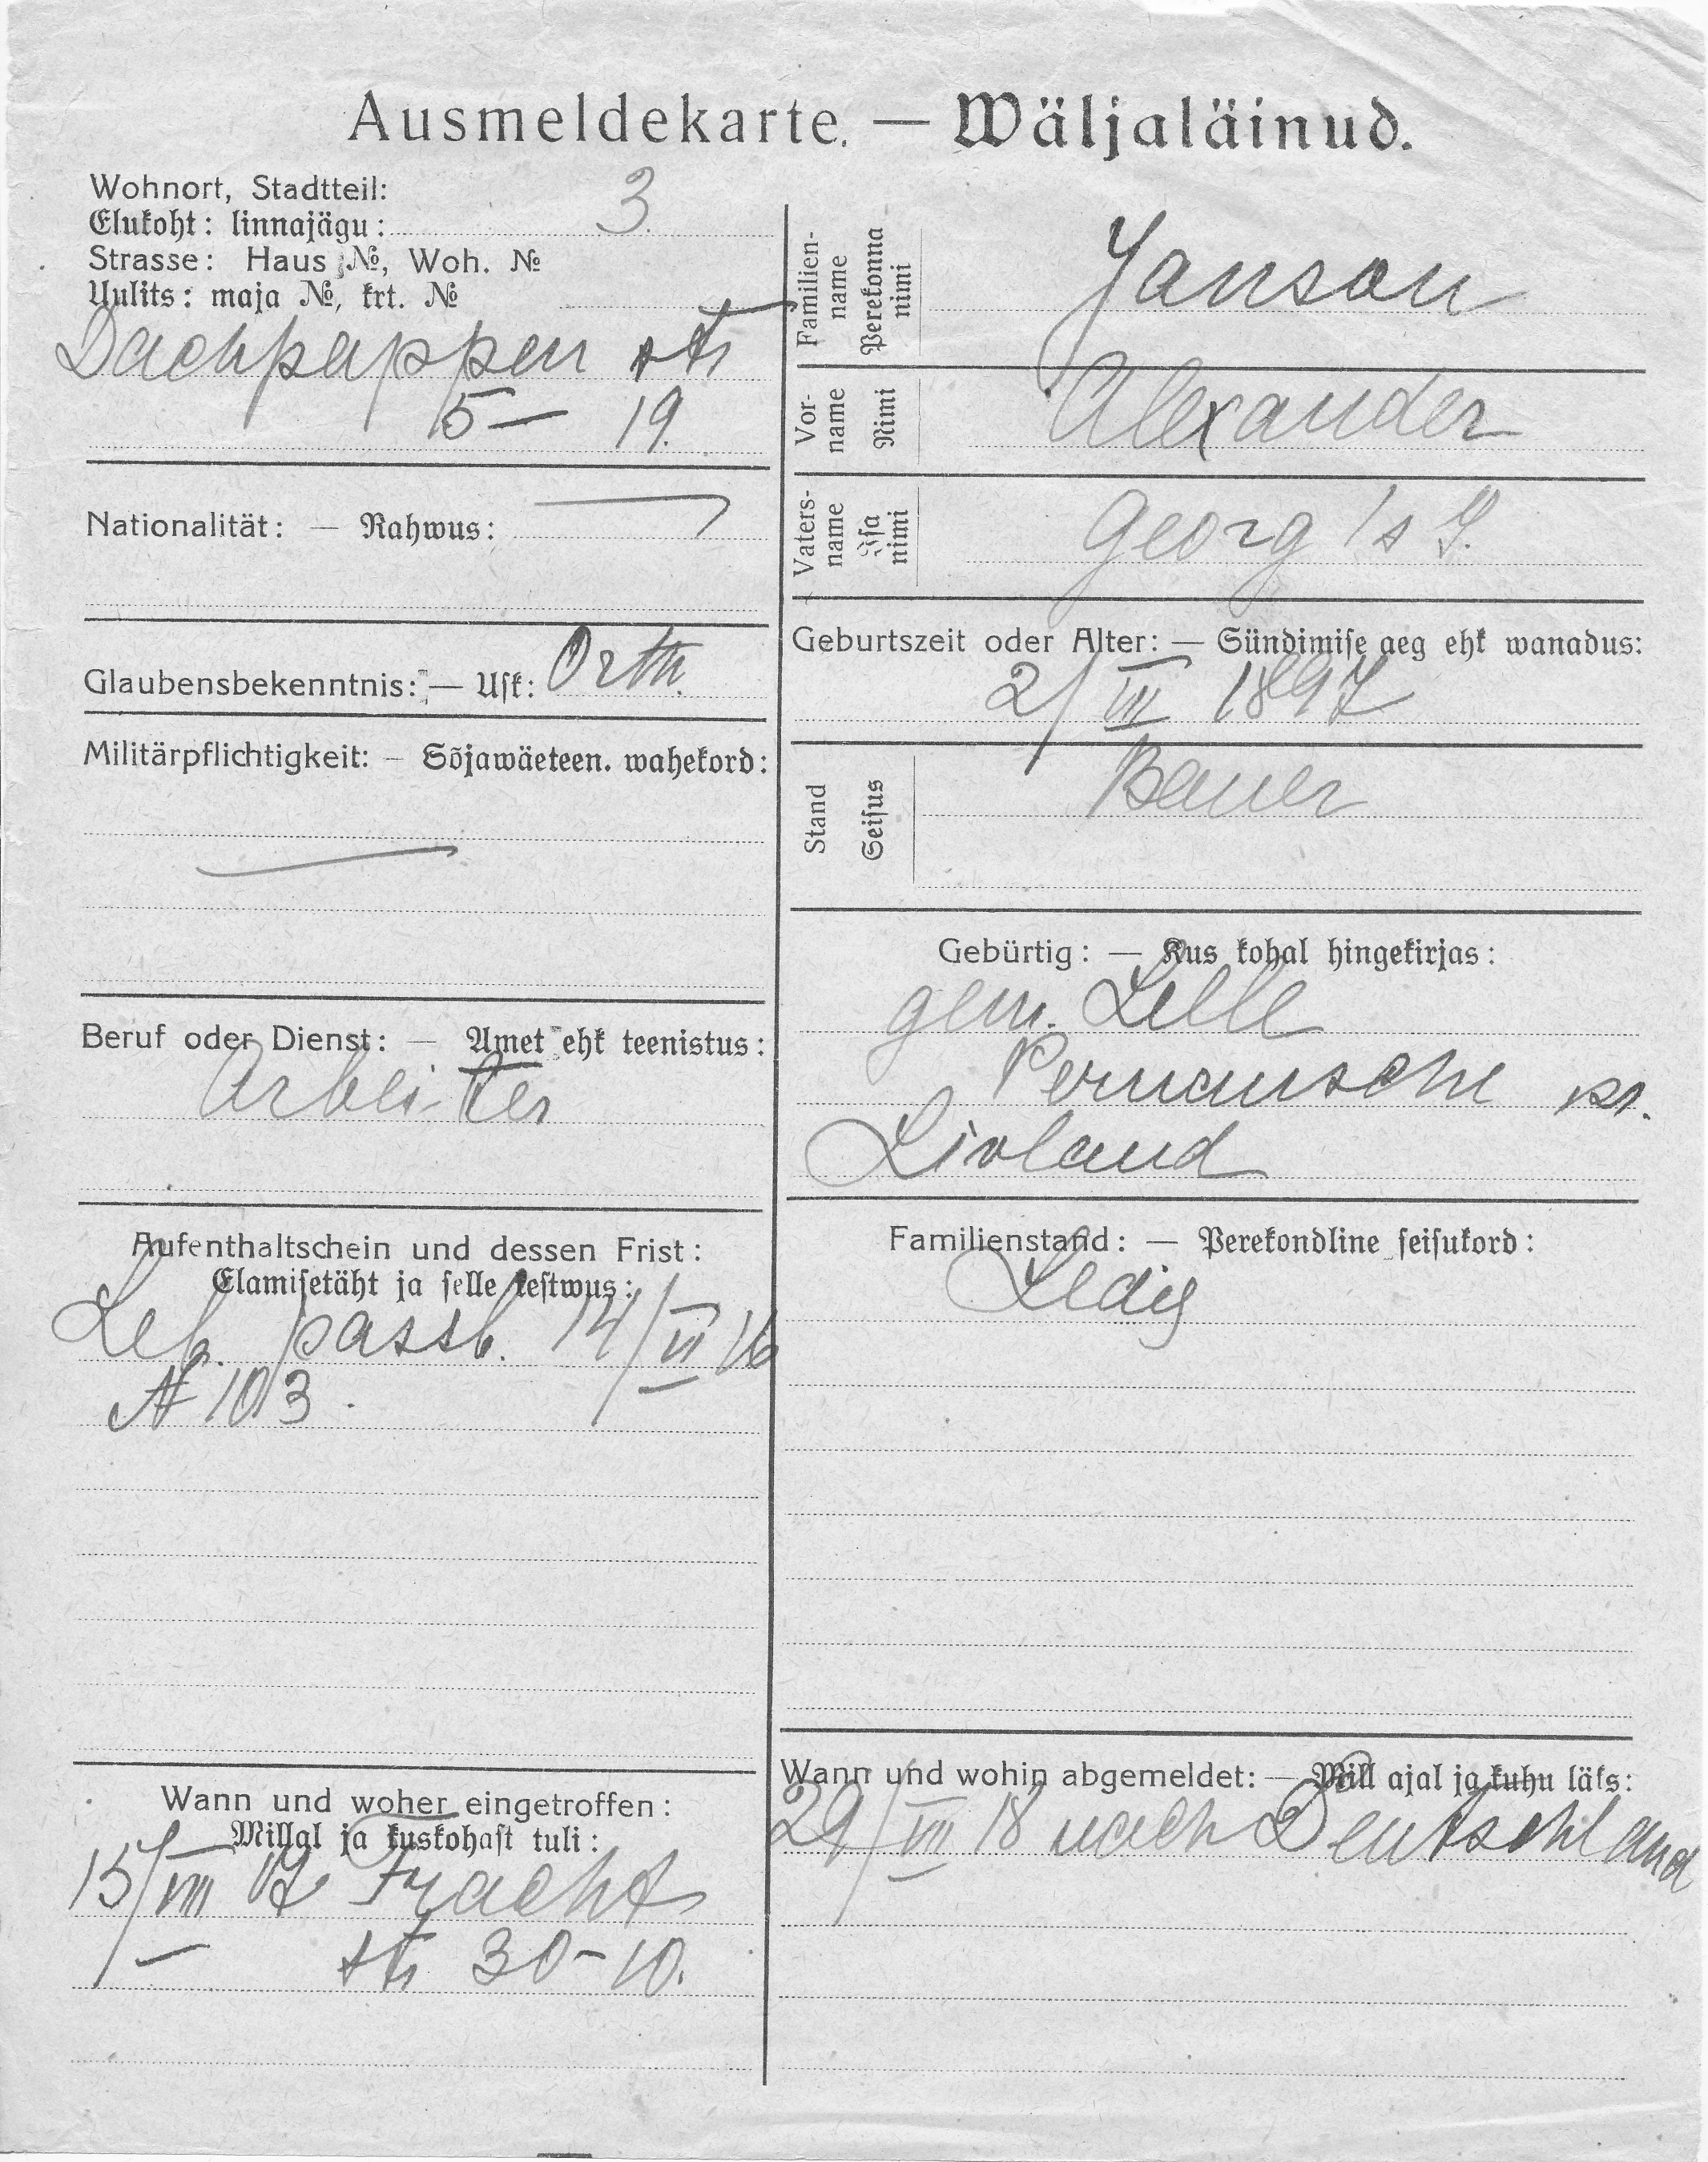 Ausmeldekarte. — Wäljaläinud.
Wohnort, Stadtteil:
Elukoht: linnajägu: 3.
Strasse: Haus №, Woh. №
Uulits: maja №, krt. №
Dachpappen str
5 — 19.
Nationalität: — Rahwus: —
Glaubensbekenntnis: — Usk: Orth.
Militärpflichtigkeit: — Sõjawäeteen. wahekord:
—
Beruf oder Dienst: — Amet ehk teenistus:
Arbeiter
Aufenthaltschein und dessen Frist:
Elamisetäht ja selle kestwus:
Leb. passb. 14/VI 16
№ 103.
Wann und woher eingetroffen:
Millal ja kuskohast tuli:
15/VIII 17 Fracht
str 30-10.
Familien-
name
Perekonna
nimi
Janson
Vor-
name
Nimi
Alexander
Vaters-
name
Isa
nimi
Georg / s G.
Geburtszeit oder Alter: — Sündimise aeg ehk wanadus:
2/III 1897
Stand
Seisus
Bauer
Gebürtig: — Kus kohal hingekirjas:
gem. Lelle
Pernausche kr.
Livland
Familienstand: — Perekondline seisukord:
Ledig
Wann und wohin abgemeldet: — Mill ajal ja kuhu läks:
29/VII 18 nach Deutschland